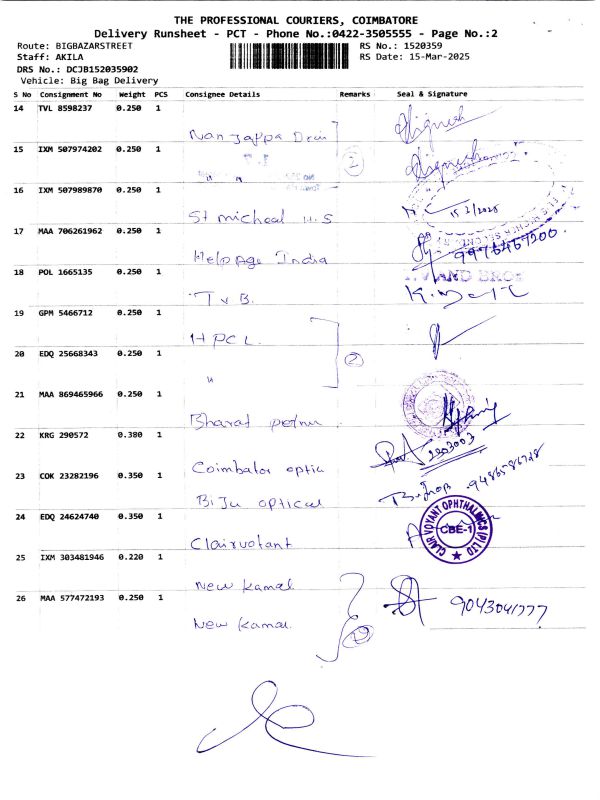 THE PROFESSIONAL COURIERS, COIMBATORE
Delivery Runsheet - PCT - Phone No.:0422-3505555 - Page No.:2
Route: BIGBAZARSTREET RS No.: 1520359
Staff: AKILA RS Date: 15-Mar-2025
DRS No.: DCJB152035902
Vehicle: Big Bag Delivery
S No Consignment No Weight PCS Consignee Details Remarks Seal & Signature
14 TVL 8598237 0.250 1
Nanjappa
15 IXM 507974202 0.250 1
" "
2
16 IXM 507989870 0.250 1
St micheal H.S
17 MAA 706261962 0.250 1
Helpage India
18 POL 1665135 0.250 1
T v B.
19 GPM 5466712 0.250 1
H PCL
20 EDQ 25668343 0.250 1
"
2
21 MAA 869465966 0.250 1
Bharat
22 KRG 290572 0.380 1
Coimbator optic
23 COK 23282196 0.350 1
BiJu optical
24 EDQ 24624740 0.350 1
Clairvotant
CLAIR VOYANT OPHTHALMICS (P) LTD
CBE-1
25 IXM 303481946 0.220 1
New Kamal
26 MAA 577472193 0.250 1
9043041777
New Kamal